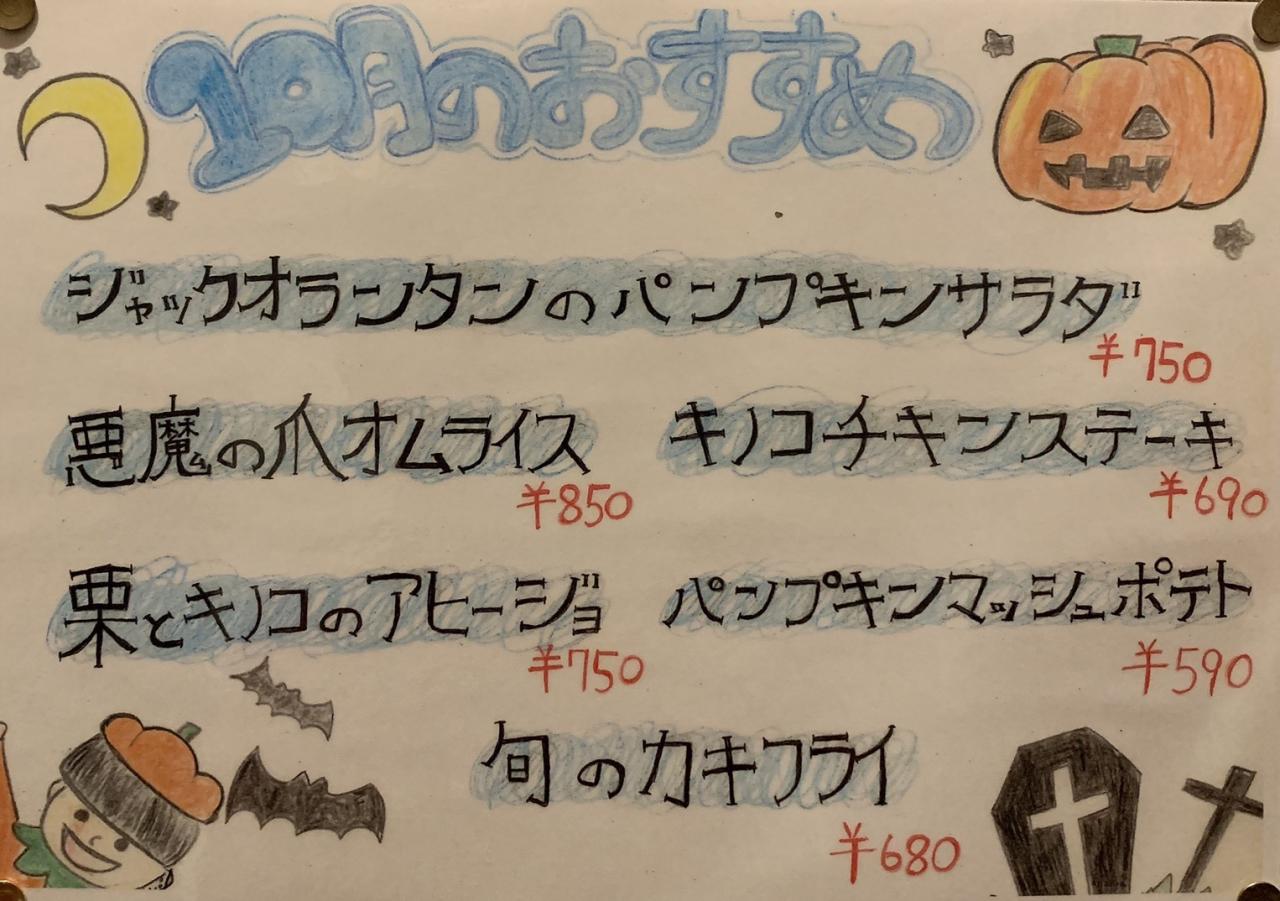 10月のおすすめ
ジャックオランタンのパンプキンサラダ
¥750
悪魔の爪オムライス
¥850
キノコチキンステーキ
¥690
栗とキノコのアヒージョ
¥750
パンプキンマッシュポテト
¥590
旬のカキフライ
¥680